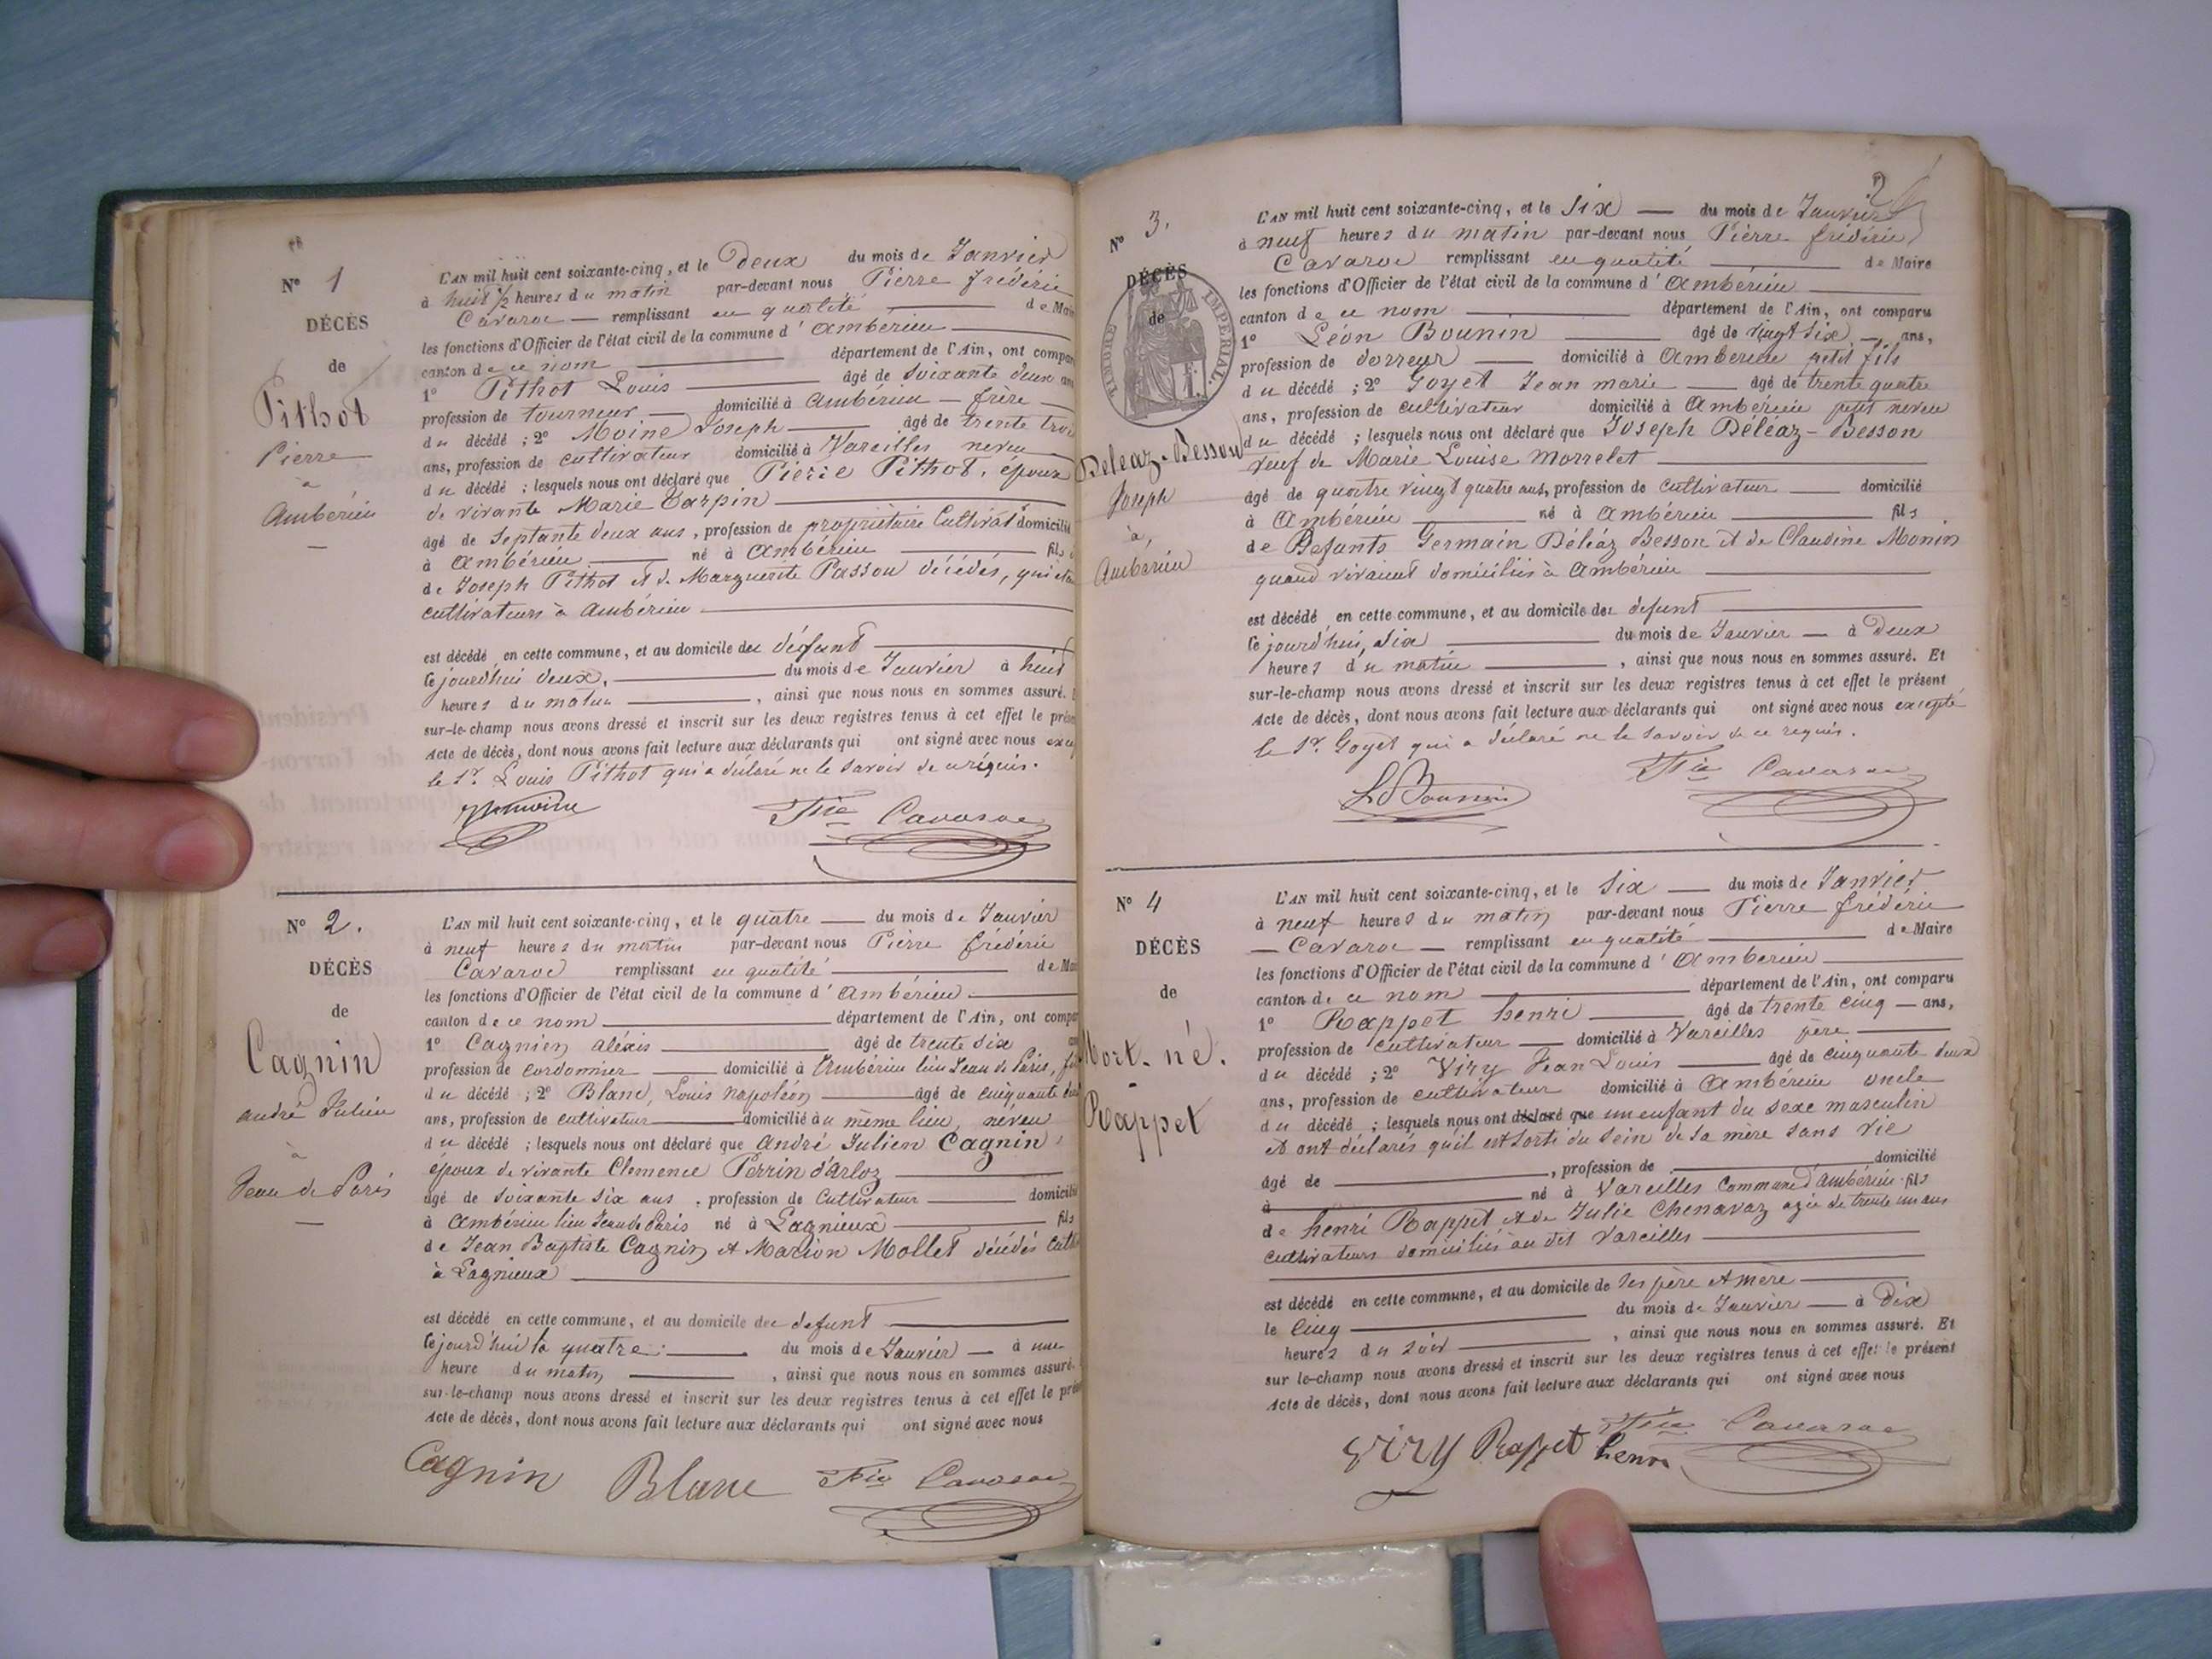 N° 1
DÉCÈS
de
Pithot
Pierre
à
Ambérieu
L'AN mil huit cent soixante-cinq, et le Deux du mois de Janvier
à huit ½ heures du matin par-devant nous Pierre frédéric
Cavaroc — remplissant en qualité de Mai
les fonctions d'Officier de l'état civil de la commune d' Ambérieu
canton de ce nom département de l'Ain, ont compar
1° Pithot Louis âgé de soixante deux an
profession de tourneur — domicilié à Ambérieu — frère
du décédé ; 2° Moine Joseph âgé de trente troi
ans, profession de cultivateur domicilié à Vareilles neveu
du décédé ; lesquels nous ont déclaré que Pierre Pithot, époux
de vivante Marie Carpin
âgé de septante deux ans, profession de propriétaire Cultivat domicilié
à Ambérieu né à Ambérieu fils
de Joseph Pithot et de Marguerite Passou décédés, qui
cultivateurs à Ambérieu
est décédé en cette commune, et au domicile du défunt
cejourd'hui deux, du mois de Janvier à huit
heures du matin , ainsi que nous nous en sommes assuré.
sur-le-champ nous avons dressé et inscrit sur les deux registres tenus à cet effet le prése
Acte de décès, dont nous avons fait lecture aux déclarants qui ont signé avec nous excep
le Sr. Louis Pithot qui a déclaré ne le savoir de ce requis.
Cavaroc
N° 2.
DÉCÈS
de
Cagnin
andré Julien
à
Jean de Paris
L'AN mil huit cent soixante-cinq, et le quatre — du mois de Janvier
à neuf heures du matin par-devant nous Pierre frédéric
Cavaroc remplissant en qualité de Mai
les fonctions d'Officier de l'état civil de la commune d' Ambérieu.
canton de ce nom département de l'Ain, ont compar
1° Cagnien aléxis âgé de trente six
profession de cordonnier domicilié à Ambérieu lieu Jean de Paris, fi
du décédé ; 2° Blanc, Louis napoléon âgé de cinquante
ans, profession de cultivateur domicilié au même lieu, neveu
du décédé ; lesquels nous ont déclaré que André Julien Cagnin
époux de vivante Clemence Perrin d'Arloz
âgé de soixante six ans, profession de Cultivateur domicilié
à Ambérieu lieu Jean de Paris né à Lagnieux fils
de Jean Baptiste Cagnin et Marion Mollet décédés
à Lagnieux
est décédé en cette commune, et au domicile du defunt
cejourd'hui le quatre du mois de Janvier — à une
heure du matin , ainsi que nous nous en sommes assuré.
sur-le-champ nous avons dressé et inscrit sur les deux registres tenus à cet effet le prése
Acte de décès, dont nous avons fait lecture aux déclarants qui ont signé avec nous
Cagnin Blanc Cavaroc
2
N° 3.
DÉCÈS
de
TIMBRE IMPÉRIAL.
Déléaz-Besson
Joseph
à,
Ambérieu
L'AN mil huit cent soixante-cinq, et le Six — du mois de Janvier
à neuf heures du matin par-devant nous Pierre frédéric
Cavaroc remplissant en qualité de Maire
les fonctions d'Officier de l'état civil de la commune d' Ambérieu
canton de ce nom département de l'Ain, ont comparu
1° Léon Bounin âgé de vingt six — ans,
profession de domicilié à Ambérieu petit fils
du décédé ; 2° Goyet Jean marie âgé de trente quatre
ans, profession de cultivateur domicilié à Ambérieu petit neveu
du décédé ; lesquels nous ont déclaré que Joseph Déléaz-Besson
veuf de Marie Louise Morrelet
âgé de quatre vingt quatre ans, profession de Cultivateur domicilié
à Ambérieu né à Ambérieu fils
de Defunts Germain Déléaz Besson et de Claudine Monin
quand vivaient domiciliés à Ambérieu
est décédé en cette commune, et au domicile du defunt
cejourd'hui, six du mois de Janvier — à Deux
heures du matin , ainsi que nous nous en sommes assuré. Et
sur-le-champ nous avons dressé et inscrit sur les deux registres tenus à cet effet le présent
Acte de décès, dont nous avons fait lecture aux déclarants qui ont signé avec nous excepté
le Sr. Goyet qui a déclaré ne le savoir de ce requis.
L Bounin Cavaroc
N° 4
DÉCÈS
de
Mort-né.
Rappet
L'AN mil huit cent soixante-cinq, et le Six — du mois de Janvier
à neuf heures du matin par-devant nous Pierre frédéric
— Cavaroc — remplissant en qualité de Maire
les fonctions d'Officier de l'état civil de la commune d' Ambérieu
canton de ce nom département de l'Ain, ont comparu
1° Rappet henri âgé de trente cinq — ans,
profession de cultivateur — domicilié à Vareilles père
du décédé ; 2° Viry Jean Louis âgé de cinquante deux
ans, profession de cultivateur domicilié à Ambérieu oncle
du décédé ; lesquels nous ont déclaré que un enfant du sexe masculin
et ont déclarés qu'il est sorti du sein de sa mère sans vie
âgé de , profession de domicilié
à né à Vareilles Commune d'Ambérieu fils
de henri Rappet et de Julie Chenavaz agée de trente un ans
cultivateurs domiciliés au dit Vareilles
est décédé en cette commune, et au domicile de ses père et mère
le Cinq du mois de Janvier — à Dix
heures du soir , ainsi que nous nous en sommes assuré. Et
sur le-champ nous avons dressé et inscrit sur les deux registres tenus à cet effet le présent
Acte de décès, dont nous avons fait lecture aux déclarants qui ont signé avec nous
Viry Rappet henri Cavaroc